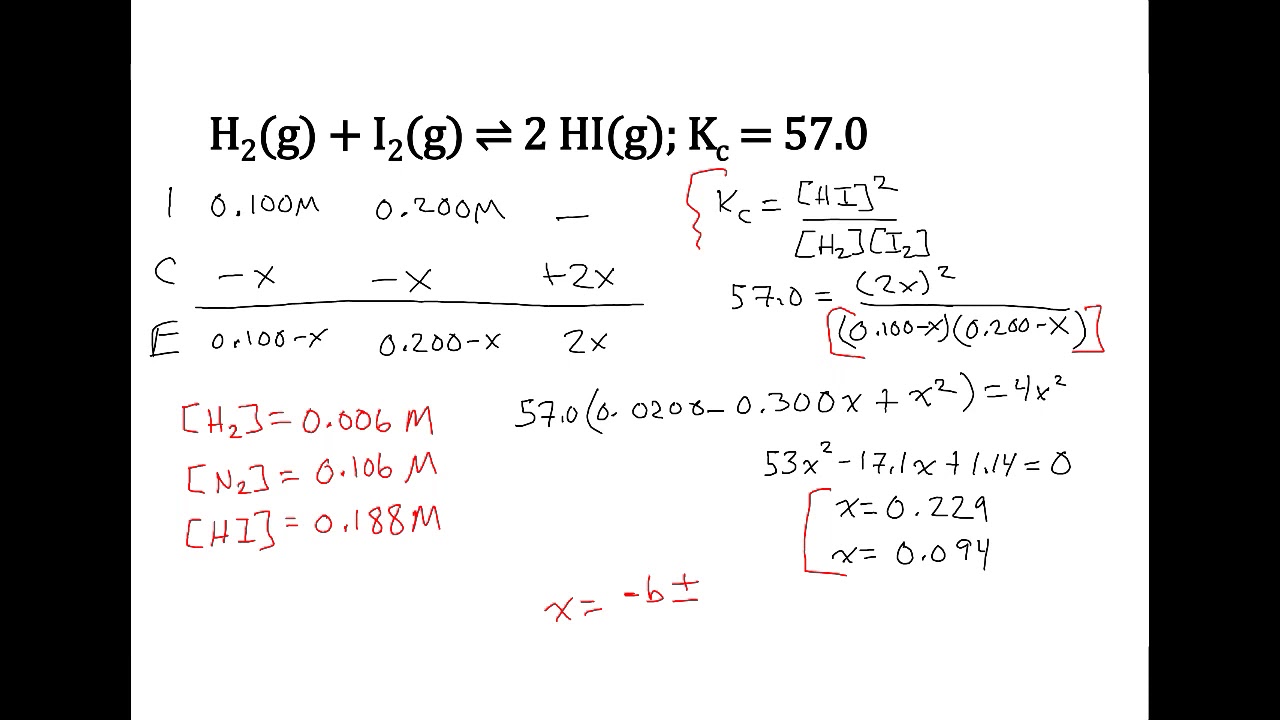 H₂(g) + I₂(g) ⇌ 2 HI(g); K_c = 57.0
I 0.100M 0.200M —
C -x -x +2x
E 0.100-x 0.200-x 2x
K_c = [HI]² / [H₂][I₂]
57.0 = (2x)² / [(0.100-x)(0.200-x)]
57.0(0.0200 - 0.300x + x²) = 4x²
53x² - 17.1x + 1.14 = 0
x = 0.229
x = 0.094
[H₂] = 0.006 M
[N₂] = 0.106 M
[HI] = 0.188 M
x = -b ±